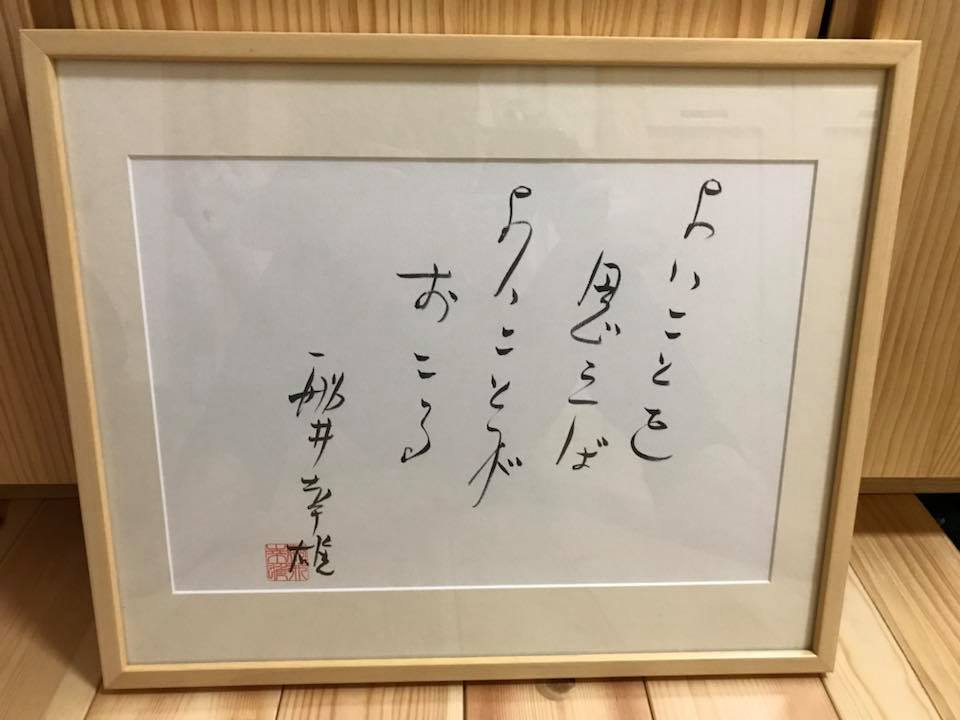 よいことを
思えば
よいことが
おこる
船井幸雄